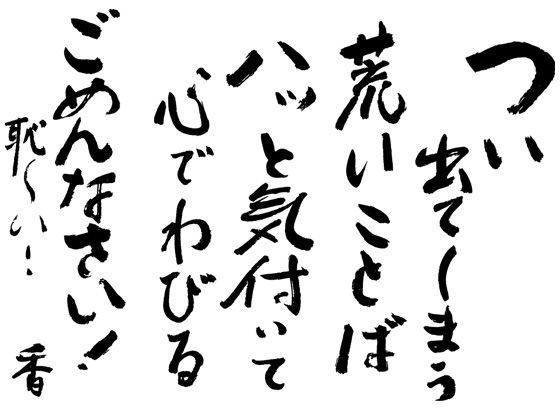 つい
出てしまう
荒いことば
ハッと気付いて
心でわびる
ごめんなさい!
恥しい!
香